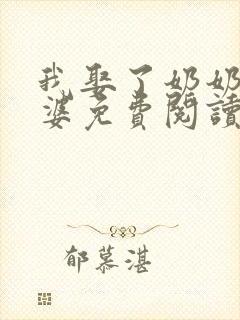 我娶了奶奶
婆免費閱讀
郁慕湛